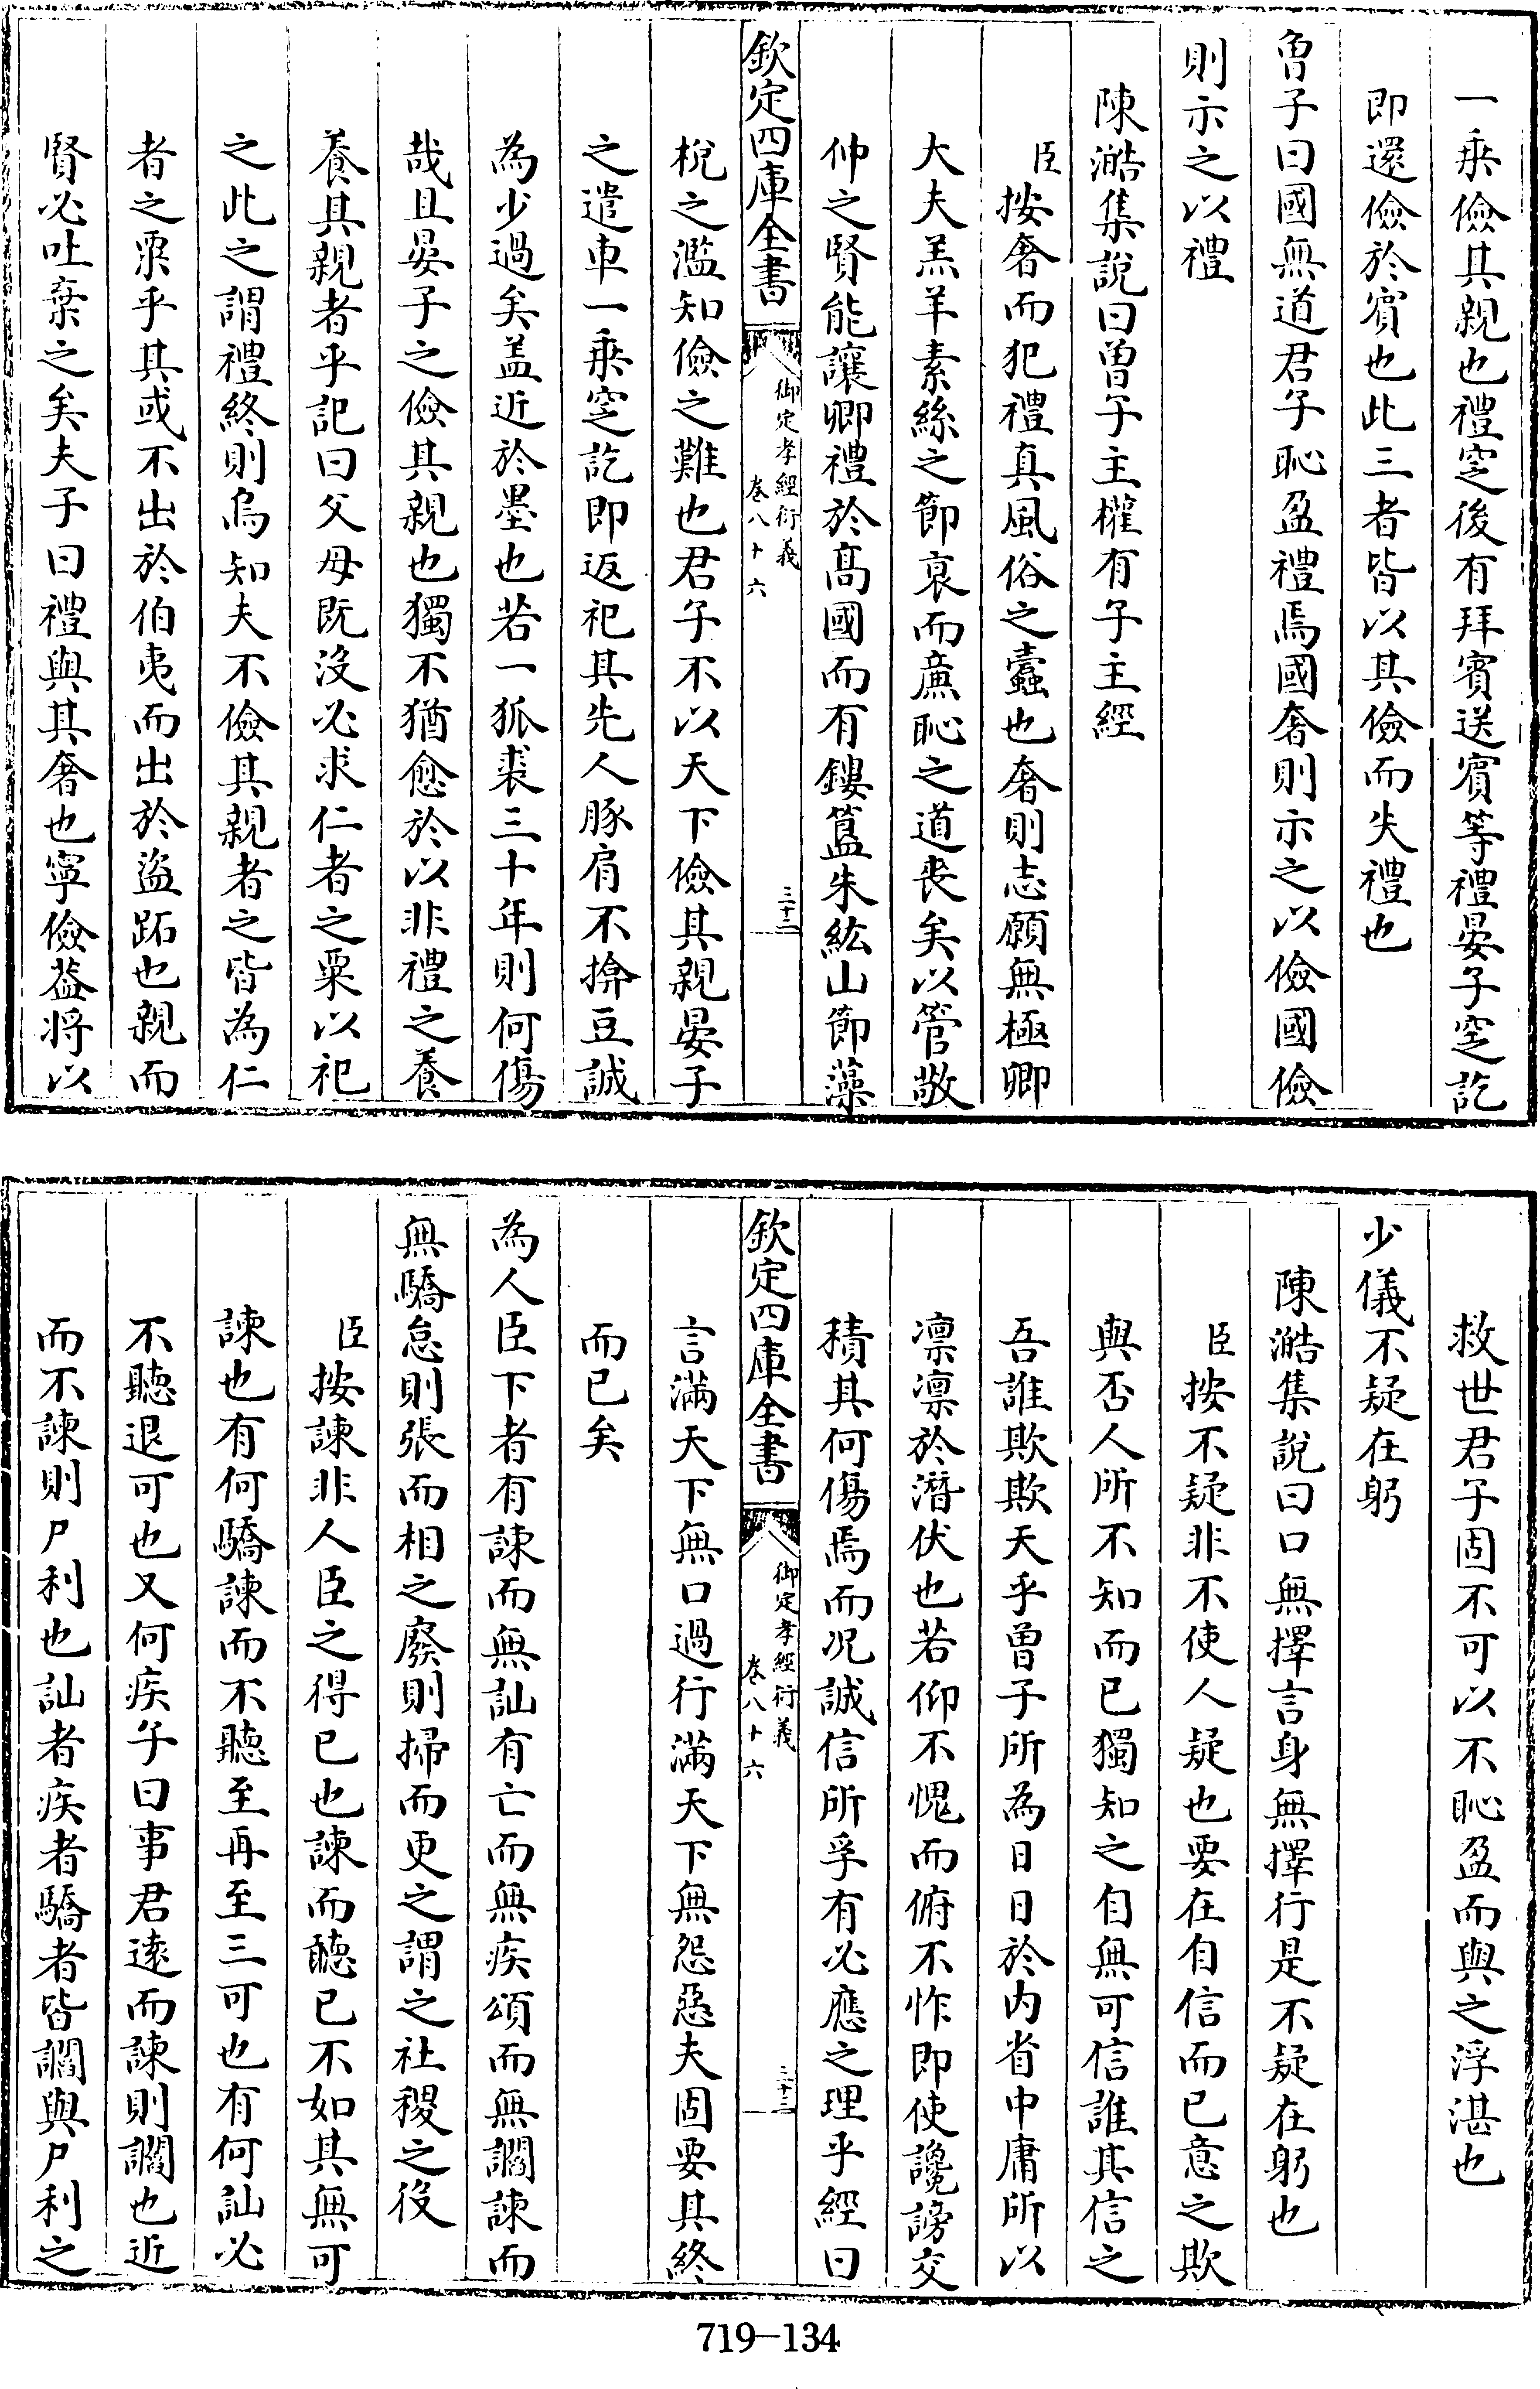 一乗儉其親也禮窆後有拜賓送賓等禮晏子窆訖
即還儉於賓也此三者皆以其儉而失禮也
曾子曰國無道君子恥盈禮焉國奢則示之以儉國儉
則示之以禮
陳澔集說曰曾子主權有子主經
臣按奢而犯禮真風俗之蠹也奢則志願無極卿
大夫羔羊素絲之節衰而廉恥之道喪矣以管敬
仲之賢能讓卿禮於高國而有鏤簋朱紘山節藻
欽定四庫全書
御定孝經衍義
卷八十六
三十二
梲之濫知儉之難也君子不以天下儉其親晏子
之遣車一乗窆訖即返祀其先人豚肩不揜豆誠
為少過矣盖近於墨也若一狐裘三十年則何傷
哉且晏子之儉其親也獨不猶愈於以非禮之養
養其親者乎記曰父母既沒必求仁者之粟以祀
之此之謂禮終則烏知夫不儉其親者之皆為仁
者之粟乎其或不出於伯夷而出於盜跖也親而
賢必吐棄之矣夫子曰禮與其奢也寧儉葢將以
救世君子固不可以不恥盈而與之浮湛也
少儀不疑在躬
陳澔集說曰口無擇言身無擇行是不疑在躬也
臣按不疑非不使人疑也要在自信而已意之欺
與否人所不知而已獨知之自無可信誰其信之
吾誰欺欺天乎曾子所為日日於内省中庸所以
凛凛於潛伏也若仰不愧而俯不怍即使讒謗交
積其何傷焉而况誠信所孚有必應之理乎經曰
欽定四庫全書
御定孝經衍義
卷八十六
三十三
言滿天下無口過行滿天下無怨惡夫固要其終
而已矣
為人臣下者有諫而無訕有亡而無疾頌而無讇諫而
無驕怠則張而相之廢則掃而更之謂之社稷之役
臣按諫非人臣之得已也諫而聽已不如其無可
諫也有何驕諫而不聽至再至三可也有何訕必
不聽退可也又何疾子曰事君逺而諫則讇也近
而不諫則尸利也訕者疾者驕者皆讇與尸利之
719-134